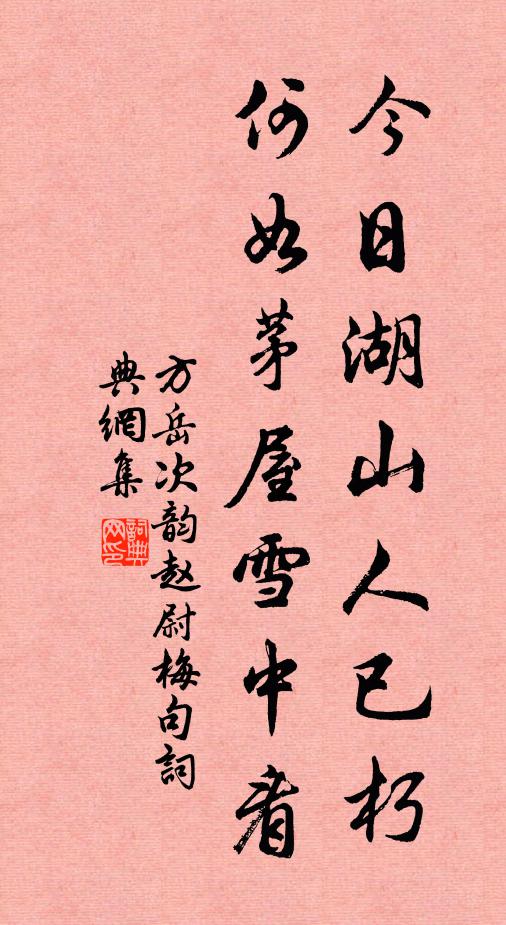 今日湖山人已朽
何如茅屋雪中看
方岳次韵赵尉梅句詞
典網集
詞典
网印